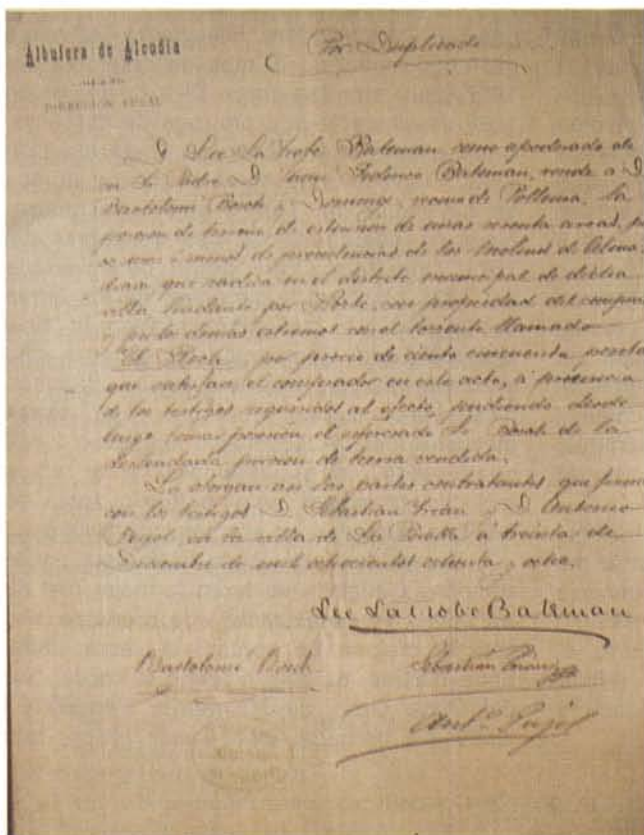 Albufera de Alcudia
Por Duplicado
D. Lee La Trobe Bateman como apoderado de
su Sr. Padre D. Juan Federico Bateman, vende a D.
Bartolomé Bosch y Domenge, vecino de Pollensa, la
porcion de terreno de estension de unas
o menos de procedencias de los
que radica en el distrito municipal de dicha
villa lindante por Norte, con propiedad del compra
y por los demas estremos con el torrente llamado
por precio de ciento cincuenta peseta
que satisface el comprador en este acto, á presencia
de los testigos requeridos al efecto, pudiendo desde
luego tomar posesión el espresado Sr. Bosch de la
deslindada porcion de tierra vendida.
Lo otorgan asi las partes contratantes que firma
con los testigos D. Sebastian y D. Antonio
Pujol en la villa de La Puebla á treinta de
de mil ochocientos ochenta y ocho.
Lee LaTrobe Bateman
Bartolomé Bosch
Sebastian
Ant.º Pujol